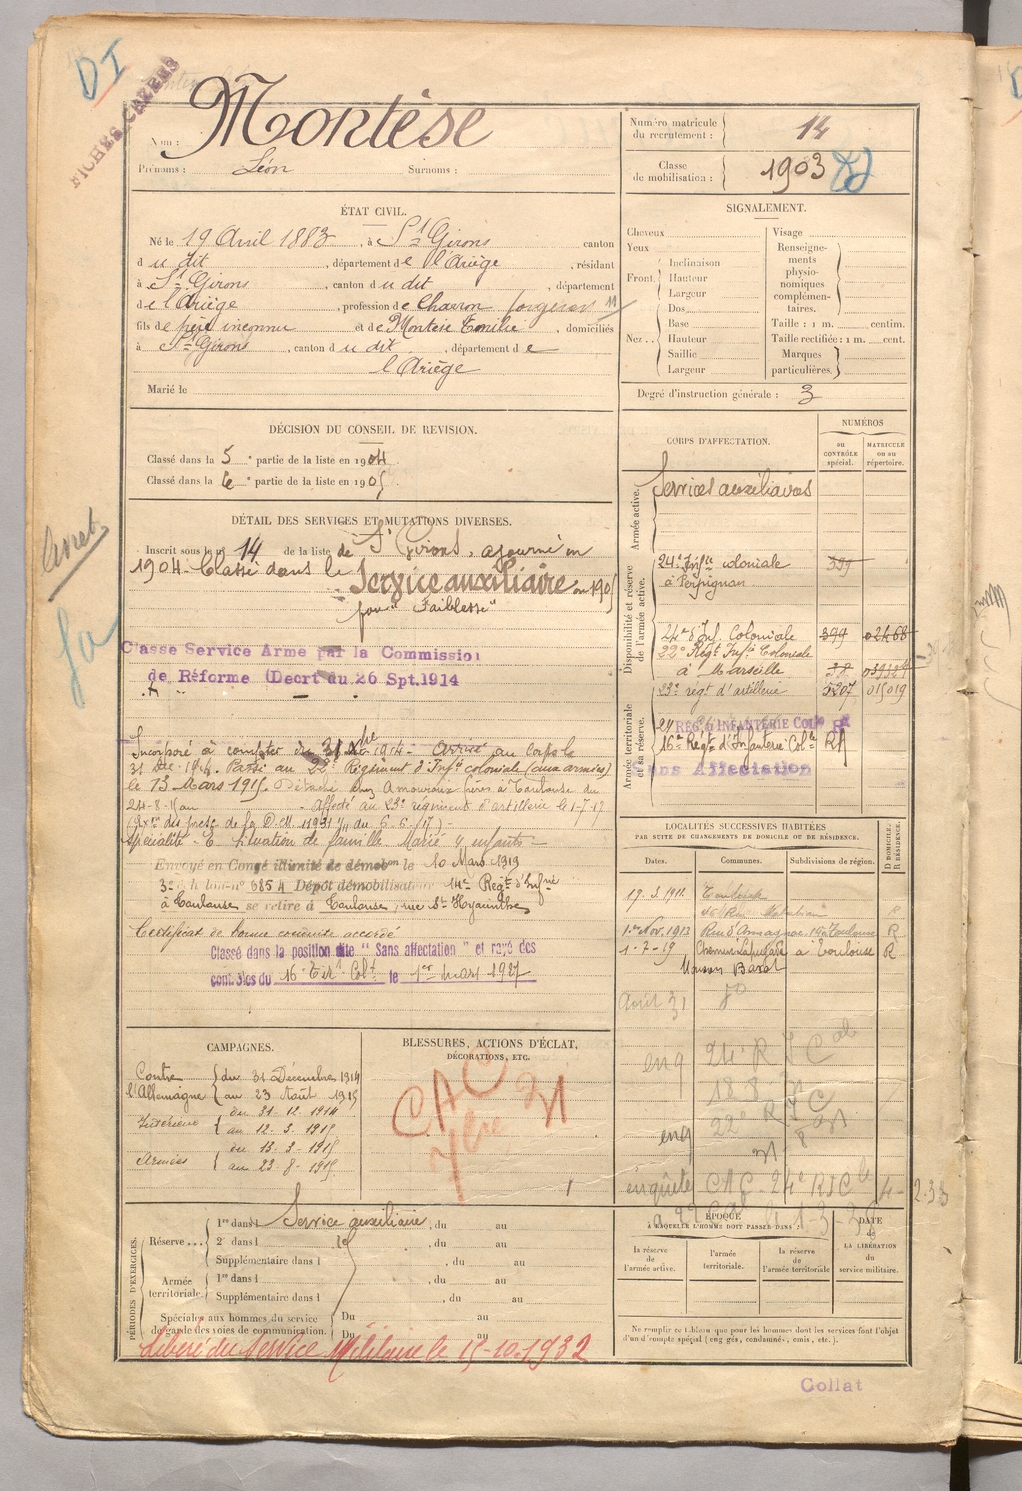 DI
FICHES CAHERS
Nom : Montèse
Prénoms : Léon Surnoms :
Numéro matricule du recrutement : 14
Classe de mobilisation : 1903
ÉTAT CIVIL.
Né le 19 Avril 1883, à St Girons canton
du dit, département de l'Ariège, résidant
à St Girons, canton du dit, département
de l'Ariège, profession de Charron forgeron
fils de père inconnu et de Montèse Emilie, domiciliés
à St Girons, canton du dit, département de
l'Ariège
Marié le
SIGNALEMENT.
Cheveux
Yeux
Front. Inclinaison
Hauteur
Largeur
Nez.. Dos
Base
Hauteur
Saillie
Largeur
Visage
Renseignements physionomiques complémentaires.
Taille : 1 m. centim.
Taille rectifiée : 1 m. cent.
Marques particulières.
Degré d'instruction générale : 3
DÉCISION DU CONSEIL DE REVISION.
Classé dans la 5e partie de la liste en 1904
Classé dans la 6e partie de la liste en 1905
DÉTAIL DES SERVICES ET MUTATIONS DIVERSES.
Inscrit sous le no 14 de la liste de St Girons, ajourné en
1904. Classé dans le Service auxiliaire en 1905
pour "Faiblesse"
Classe Service Arme par la Commission
de Réforme (Decrt du 26 Spt. 1914
Incorporé à compter du 31 Xbre 1914 - Arrivé au corps le
31 Déc. 1914. Passé au 22e Régiment d'Infie coloniale (aux armées)
le 13 Mars 1915. Détaché chez Amouroux frères à Toulouse du
24-8-15 au - Affecté au 23e régiment d'artillerie le 1-7-17
du 6-6-17) -
Spécialité - E Situation de famille Marié 4 enfants -
Envoyé en Congé illimité de démobon le 10 Mars 1919
3e échelon - no 6854 Dépôt démobilisateur 14e Regt d'Infie
à Toulouse se retire à Toulouse, rue St Hyacinthe
Certificat de bonne conduite accordé
Classé dans la position dite "Sans affectation" et rayé des
contrôles du 16e Ter. Colal le 1er mars 1927
CORPS D'AFFECTATION.
NUMÉROS
au CONTRÔLE spécial.
MATRICULE ou au répertoire.
Armée active.
Services auxiliaires
Disponibilité et réserve de l'armée active.
24e Infie coloniale 399
à Perpignan
24e d'Inf. Coloniale 399 02468
22e Régt Infie Coloniale
à Marseille 38
23e régt d'artillerie 5207 015019
Armée territoriale et sa réserve.
24 REG. D'INFANTERIE COL
16e Régt d'Infanterie Colle
Sans Affectation
LOCALITÉS SUCCESSIVES HABITÉES
PAR SUITE DE CHANGEMENTS DE DOMICILE OU DE RÉSIDENCE.
Dates. Communes. Subdivisions de région. D DOMICILE. R RÉSIDENCE.
17. 3. 1911. Toulouse
R
1er Nov. 1913 Toulouse R
1-2-19 à Toulouse R
Maison Barat
Août 31
enq 24e R I Cal
enq 22e R I C
enquête CAC - 24e RIC 4-2.33
CAMPAGNES.
Contre l'Allemagne du 31 Décembre 1914
au 23 Août 1915
Intérieur du 31-12-1914
au 12-3-1915
Armées du 13-3-1915
au 23-8-1915
BLESSURES, ACTIONS D'ÉCLAT,
DÉCORATIONS, ETC.
CAC
7bre 31
PÉRIODES D'EXERCICES.
Réserve... 1re dans l Service auxiliaire, du au
2e dans l, du au
Supplémentaire dans l, du au
Armée territoriale. 1re dans l, du au
Supplémentaire dans l, du au
Spéciales aux hommes du service de garde des voies de communication. Du au
Du au
Libéré du Service Militaire le 15-10-1932
ÉPOQUE
À LAQUELLE L'HOMME DOIT PASSER DANS :
la réserve de l'armée active.
l'armée territoriale.
la réserve de l'armée territoriale
DATE de LA LIBÉRATION du service militaire.
Ne remplir ce tableau que pour les hommes dont les services font l'objet
d'un décompte spécial (engagés, condamnés, omis, etc.).
Collat